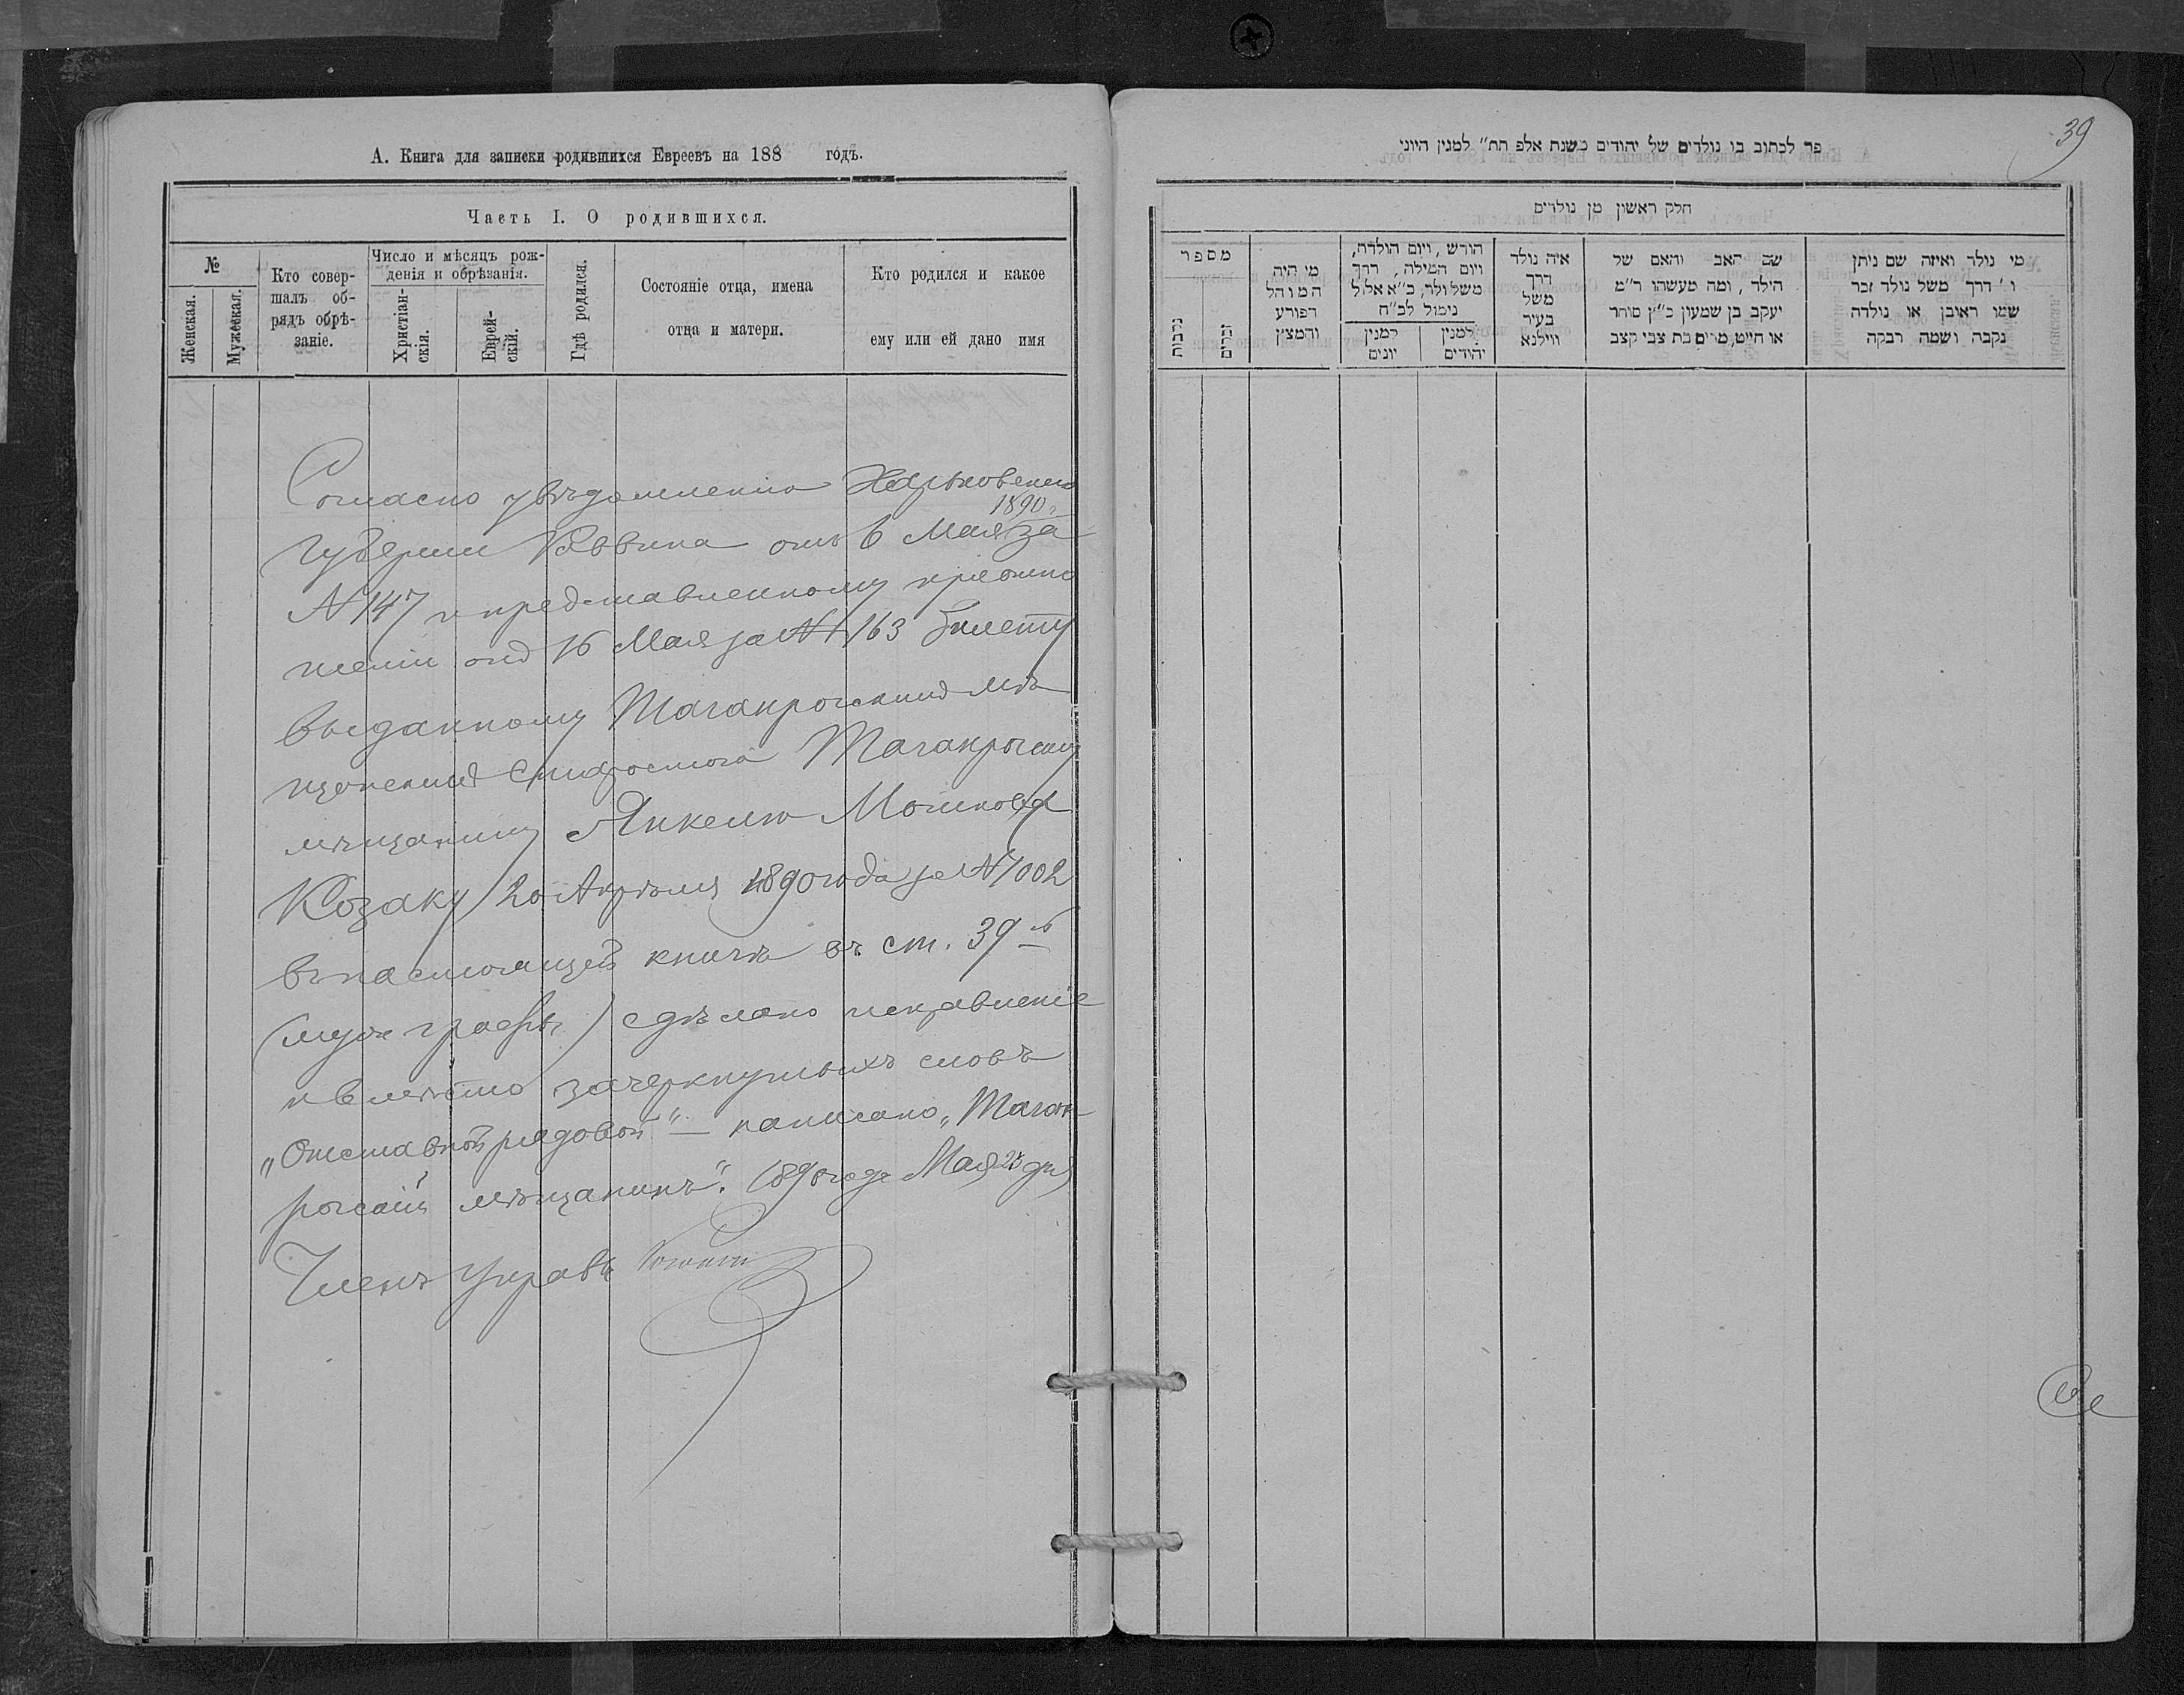 А. Книга для записки родившихся Евреевъ на 188 годъ.
Часть I. О родившихся.
№
Женская.
Мужеская.
Кто совер-
шалъ об-
рядъ обрѣ-
заніе.
Число и мѣсяцъ рож-
денія и обрѣзанія.
Христіан-
скія.
Еврей-
скій.
Гдѣ родился.
Состояніе отца, имена
отца и матери.
Кто родился и какое
ему или ей дано имя
Согласно увѣдомленію Харьковскаго
1890 г.
Губерніи Раввина отъ 6 Мая за
№ 147 и представленному при отно
шеніи отъ 16 Мая за № 163 билету
выданному Таганрогскимъ мѣ
щанскимъ Старостой Таганрогскому
мѣщанину Янкелю Мошкову
Козаку 20 Апрѣля 1890 года за № 1002
въ настоящей книгѣ въ ст. 39й
(муж графы) сдѣлано исправленіе
и вмѣсто зачеркнутыхъ словъ
„Отставной рядовой“ — написано „Таган
рогскій мѣщанинъ“. 1890 года Мая 23 дня
Членъ Управы
39
פר לכתוב בו נולדים של יהודים משנת אלפ תת״ למנין היוני
חלק ראשון מן נולדים
מספר
נקבות
זכרים
מי היה
המוהל
הפורע
והמצץ
חודש, ויום הולדת,
ויום המילה, דרך
משל ולד, כ״א אלול
נימול לכ״ח
למנין
יונים
למנין
יהודים
איה נולד
דרך
משל
בעיר
ווילנא
שם האב והאם של
הילד, ומה מעשהו ר״מ
יעקב בן שמעון כ״ץ סוחר
או חייט, מרים בת צבי קצב
מי נולד ואיזה שם ניתן
ו׳ דרך משל נולד זכר
שמו ראובן או נולדה
נקבה ושמה רבקה